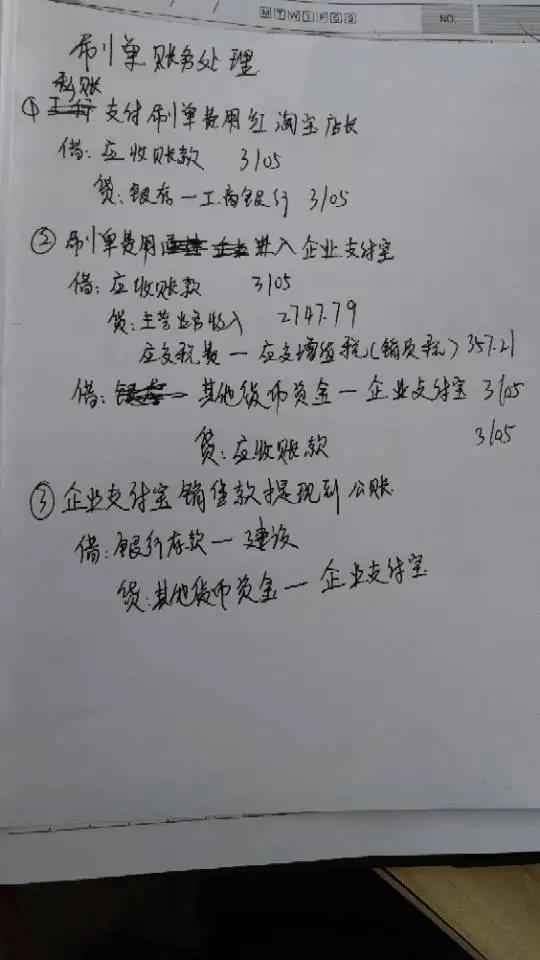 M T W T F S S NO.
刷单账务处理
私账
① 支付刷单费用红淘宝店长
借: 应收账款 3105
贷: 银存一工商银行 3105
② 刷单费用进入企业支付宝
借: 应收账款 3105
贷: 主营业务收入 2747.79
应交税费一应交增值税(销项税) 357.21
借: 其他货币资金一企业支付宝 3105
贷: 应收账款 3105
③ 企业支付宝销售款提现到公账
借: 银行存款一建设
贷: 其他货币资金一企业支付宝